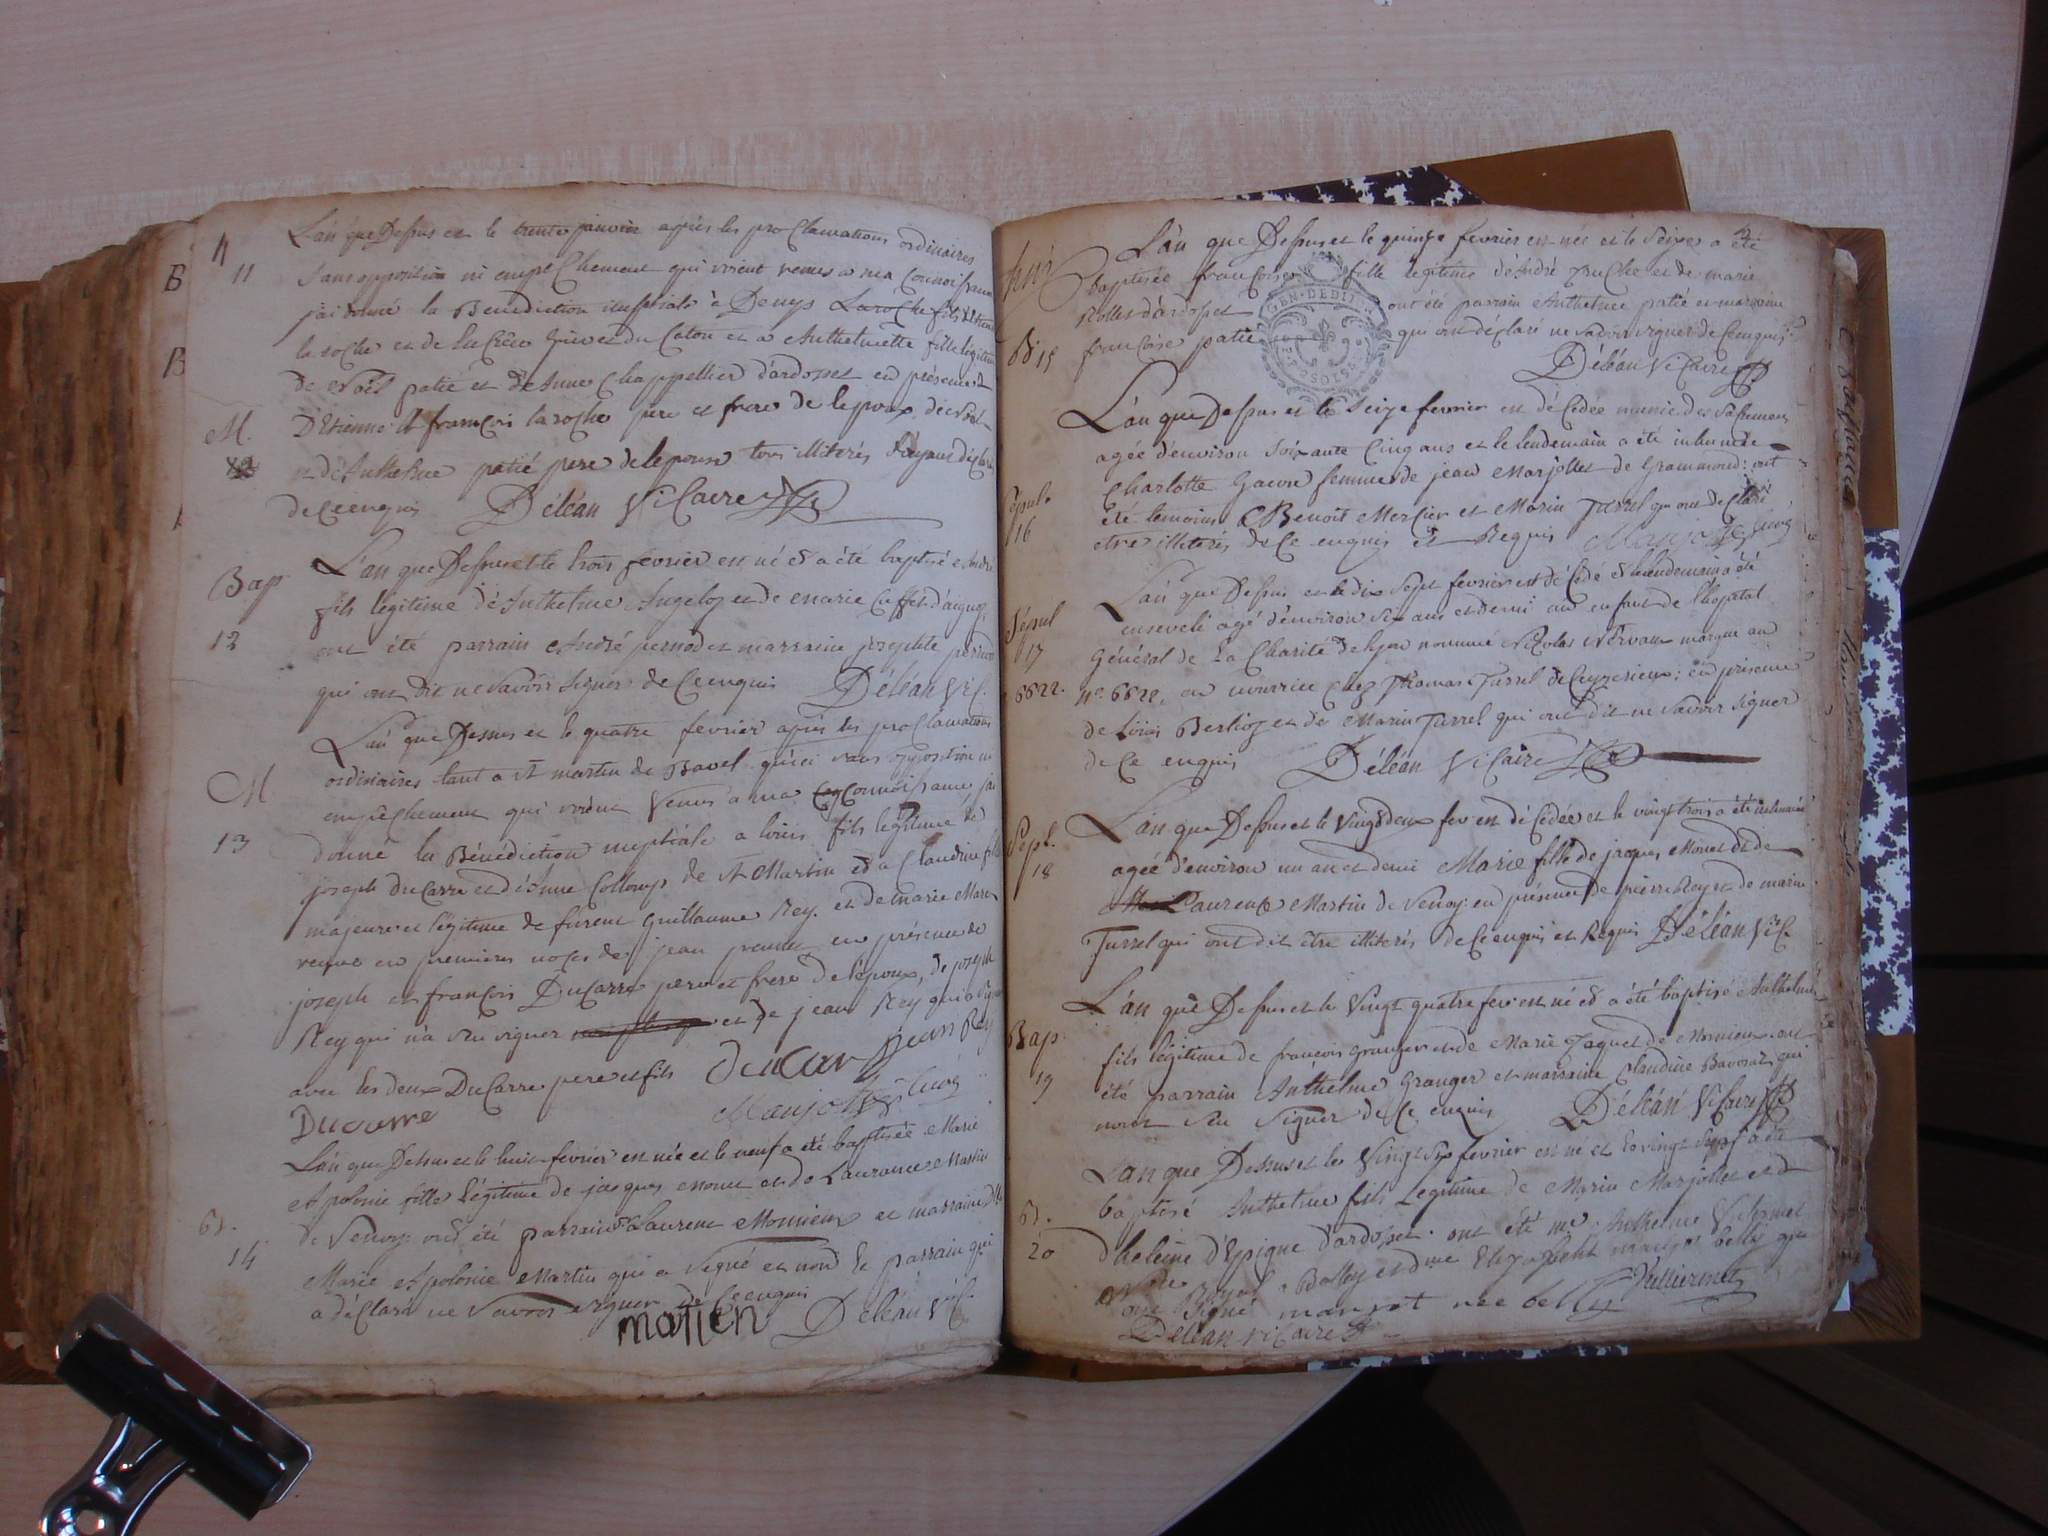 11
L'an que Dessus et le trente janvier après les proClamations ordinaires
sans opposition ni empeChement qui soient venus a ma Connoissance
j'ai donné la Benediction nuptiale à Denys LaroChe fils
la roChe et de et a Anthelmette fille légitime
de Noël patié et de Anne Chappellier d'ardosset en présence
D'Etienne et françois laroche pere et frere de lepoux, de
et de Anthelme patié pere de lepouse tous illiterés
de Ce enquis Déléan ViCaire
M.
Bap
12
L'an que Dessus et le trois fevrier est né et a été baptisé André
fils légitime de Anthelme Angeloz et de Marie Cuffet d'aignoz,
ont été parrain André pernod et marraine josephte pernod
qui ont dit ne savoir signer de Ce enquis Déléan ViC.
M
13
L'an que Dessus et le quatre fevrier après les proClamations
ordinaires tant a St martin de Bavel qu'ici sans opposition ni
empêChement qui soient venus a ma Connoissance, j'ai
donné la Bénédiction nuptiale a louis fils légitime de
joseph DuCarre et d'Anne Collomp de St Martin et a Claudine fille
majeure et légitime de furent Guillaume Rey. et de marie Maron
veuve en premieres noces de jean en présence de
joseph et françois DuCarre pere et frere de l'époux, de joseph
Rey qui n'a seu signer et de jean Rey qui a signé
avec les deux DuCarre pere et fils DuCarre jean Rey
Ducarre Manjot Curé
B.
14
L'an que Dessus et le huit fevrier est née et le neuf a été baptisée Marie
Apolonie fille légitime de jacques Monet et de Laurance Martin
de Senoy: ont été parrain Laurent Monnieux et marraine
Marie Apolonie Martin qui a signé et non le parrain qui
a déClaré ne savoir signer de Ce enquis
martien Déléan ViC.
2
B 15
L'an que Dessus et le quinze fevrier est née et le seize a été
baptisée françoise fille légitime d'André et de marie
Rollet d'ardosset ont été parrain Anthelme patié et marraine
françoise patié qui ont déclaré ne savoir signer de Ce enquis
GEN. DE BI
Déléan ViCaire
Sépul.
16
L'an que Dessus et le seize fevrier est déCédée munie des saCremens
agée d'environ soixante Cinq ans et le lendemain a été inhumée
Charlotte femme de jean Marjollet de Grammond: ont
été temoins Benoît MerCier et Marin Turrel qui ont déClaré
etre illiterés de Ce enquis et Requis Manjot Curé
Sépul
17
6622.
L'an que Dessus et le dix sept fevrier est déCédé et le lendemain a été
enseveli agé d'environ six ans et demi un enfant de l'hopital
Général de La Charité de lyon nommé NiColas Nervaux marqué au
n°. 6622, en nourrice Chez Thomas Turrel de Ceyzerieux; en présence
de Louis Berlioz et de Marin Turrel qui ont dit ne savoir signer
de Ce enquis Déléan ViCaire
Sépl.
18
L'an que Dessus et le vingt deux fev: est déCédée et le vingt trois a été inhumée
agée d'environ un an et demi Marie fille de jaques Monet et de
Laurence Martin de Senoy: en présence de pierre Rey et de marin
Turrel qui ont dit être illiterés de Ce enquis et Requis Déléan ViC
Bap
19
L'an que Dessus et le vingt quatre fev: est né et a été baptisé Anthelme
fils légitime de francois Granger et de Marie Jaquet de Monieux. ont
été parrain Anthelme Granger et marraine Claudine Bavozat qui
nont seu signer de Ce enquis Déléan ViCaire
B.
20
L'an que Dessus et le vingt six fevrier est né et le vingt sept a été
baptisé Anthelme fils Légitime de Marin Marjollet et d
héleine d'Epigue d'ardosset. ont été me Anthelme
Nre Royal a Belley et dme Elizabeth manjot belly qui
ont signé manjot née belly Vuilliermet
Déléan viCaire